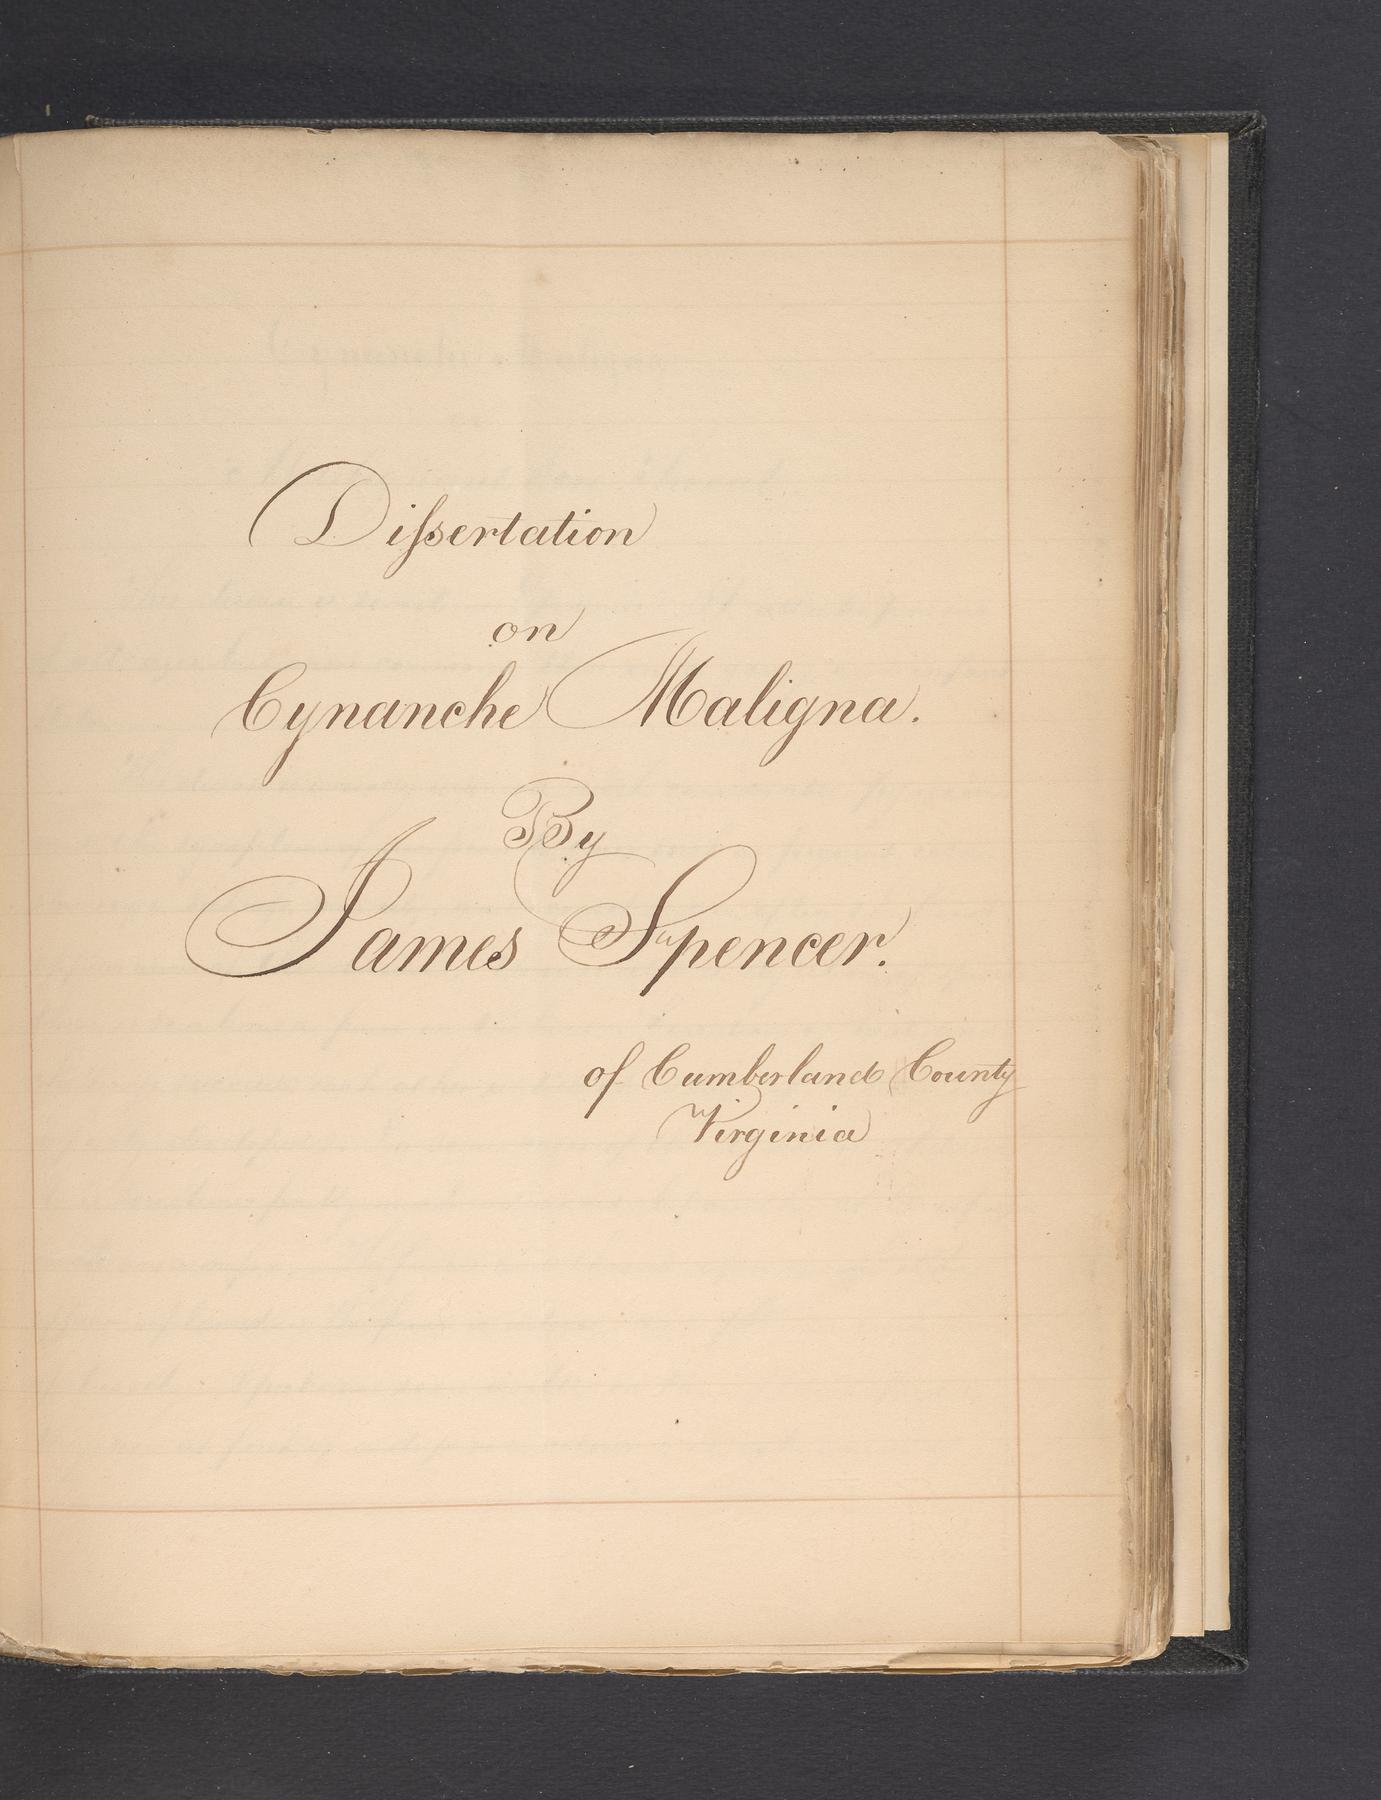 Dissertation
on
Cynanche Maligna.
By
James Spencer.
of Cumberland County
Virginia